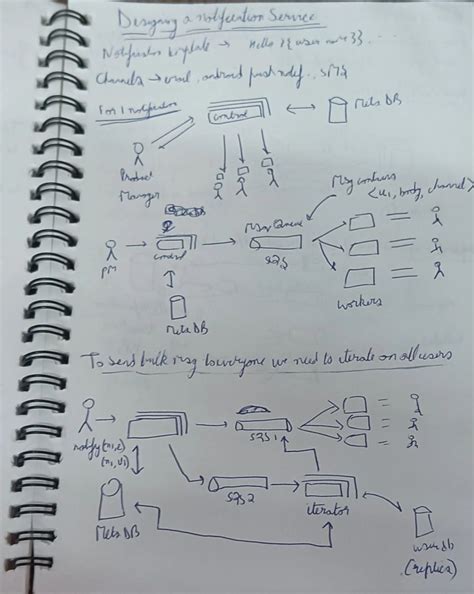 Designing a notification Service
Notification template → Hello {{user name}}..
Channels → email, android push notif.., SMS
1 on 1 notification
control
Meta DB
Product
Manager
Msg contains
<u1, body, channel>
Msg Queue
PM
control
SQS
workers
Meta DB
To send bulk msg to everyone we need to iterate on all users
notify(n1,c)
(n1, u1)
SQS 1
SQS 2
iterator
Meta DB
user db
(replica)